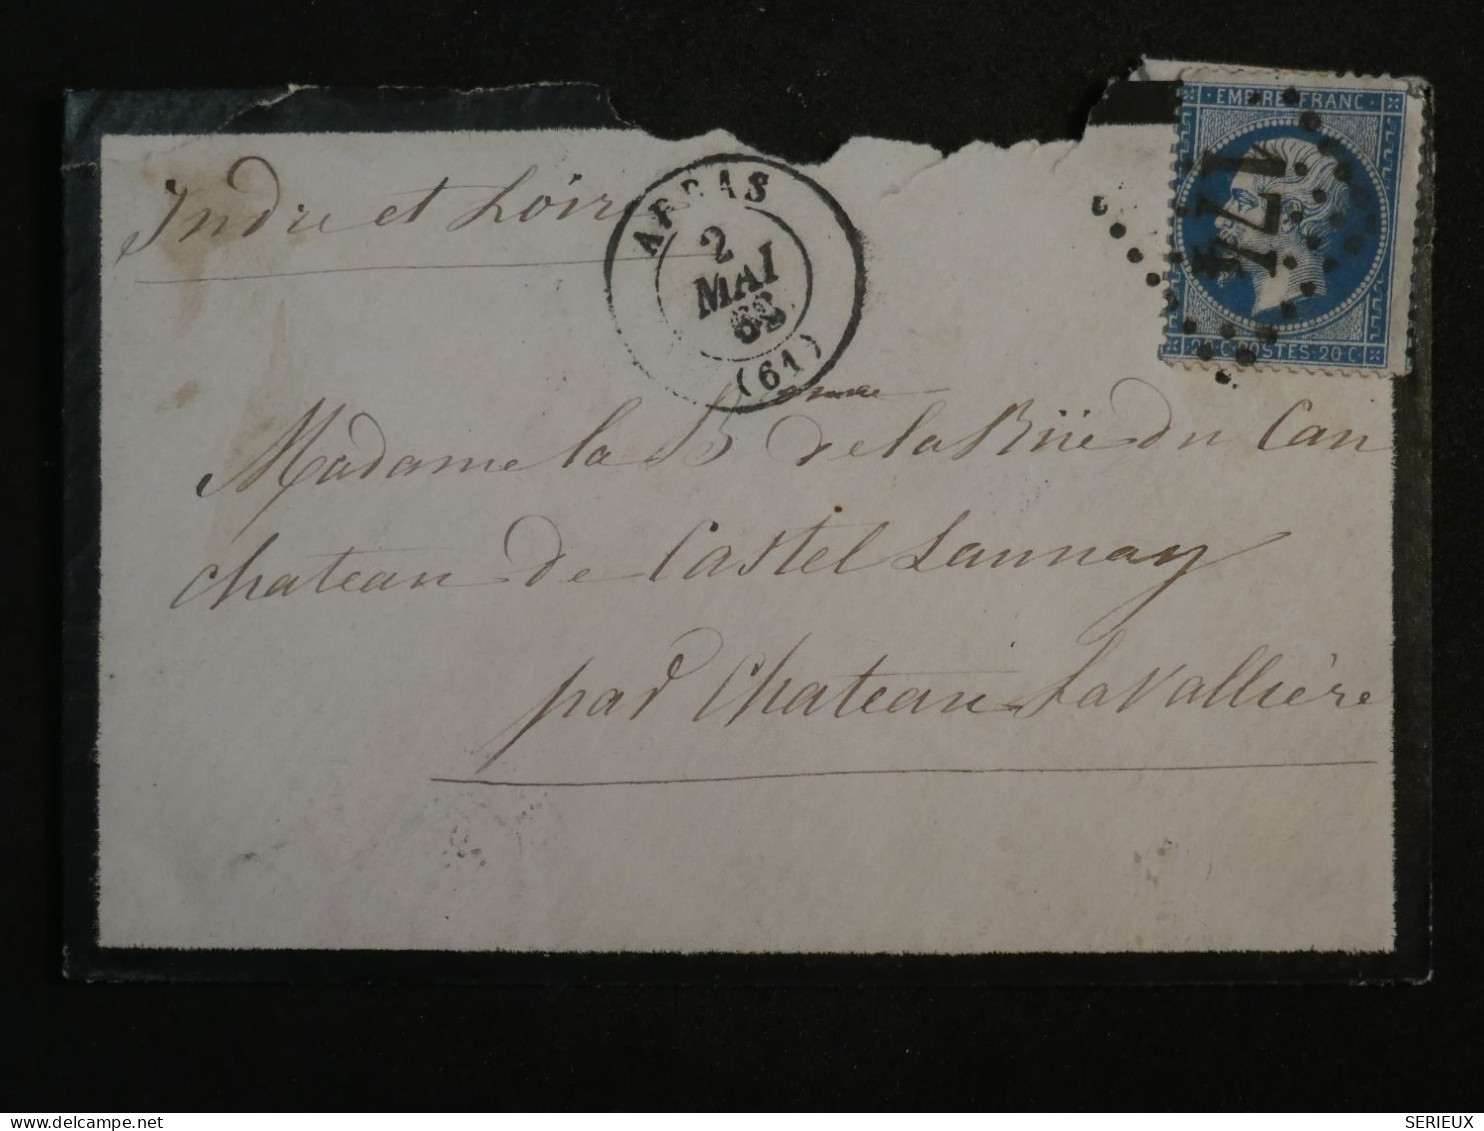 EMPIRE FRANC
174
Indre et Loire
ARRAS
2
MAI
68
(61)
20 C POSTES 20 C
Madame la B de la Rüe du Can
chateau de Castel Launay
par Chateau LaVallière
delcampe.net
SERIEUX